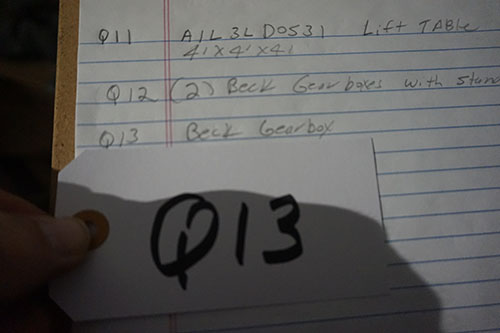 Q11 A1L3LD0531 Lift TABle
4'x4'x4'
Q12 (2) Beck Gearboxes with Stand
Q13 Beck Gearbox
Q13